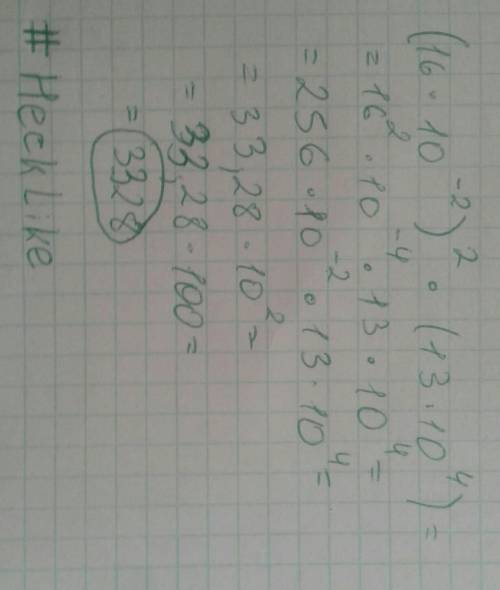 (16 · 10⁻²)² · (13 · 10⁴) =
= 16² · 10⁻⁴ · 13 · 10⁴ =
= 256 · 10⁻² · 13 · 10⁴ =
= 33,28 · 10² =
= 33,28 · 100 =
= 3328
# HeckLike